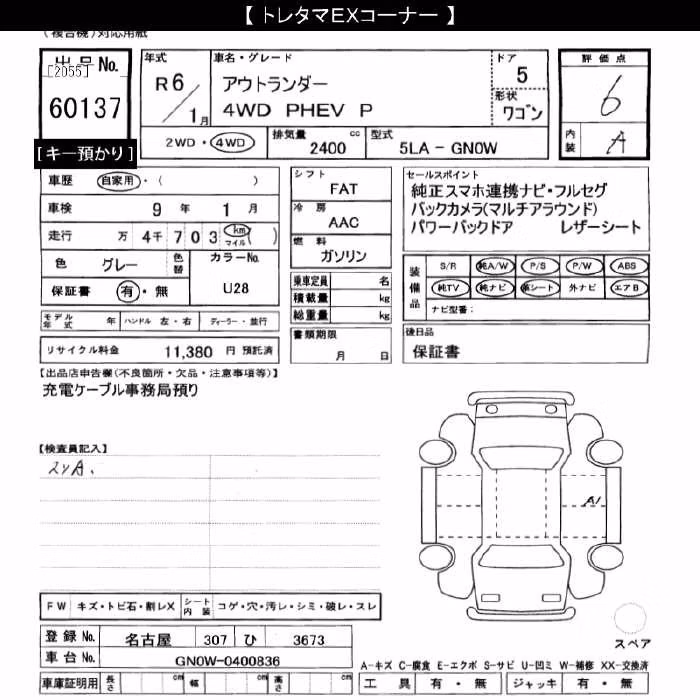 【 トレタマEXコーナー 】
(複合機)対応用紙
出品No.
[2055]
60137
[キー預かり]
年式
R6/1月
車名・グレード
アウトランダー
4WD PHEV P
ドア
5
形状
ワゴン
2WD・4WD
排気量 2400 cc
型式 5LA - GN0W
評価点
6
内装 A
車歴 自家用・( )
車検 9年 1月
走行 万 4千 7 0 3 km マイル ( )
色 グレー 色替
カラーNo. U28
保証書 有・無
モデル年式 年 ハンドル 左・右 ディーラー・並行
リサイクル料金 11,380 円 預託済
シフト FAT
冷房 AAC
燃料 ガソリン
乗車定員 名
積載量 kg
総重量 kg
書類期限
月 日
セールスポイント
純正スマホ連携ナビ・フルセグ
バックカメラ(マルチアラウンド)
パワーバックドア レザーシート
装備品
S/R 純A/W P/S P/W ABS
純TV 純ナビ 革シート 外ナビ エアB
ナビ型番:
後日品
保証書
【出品店申告欄(不良箇所・欠品・注意事項等)】
充電ケーブル事務局預り
【検査員記入】
スリA.
A1
FW キズ・トビ石・割レX シート内装 コゲ・穴・汚レ・シミ・破レ・スレ
スペア
登録No. 名古屋 307 ひ 3673
車台No. GN0W-0400836
A-キズ C-腐食 E-エクボ S-サビ U-凹ミ W-補修 XX-交換済
車庫証明用 長さ cm 幅 cm 高さ cm
工具 有・無 ジャッキ 有・無